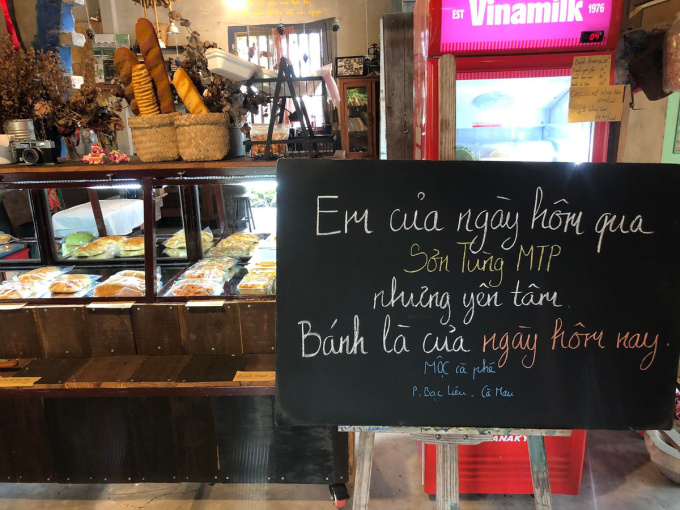 EST Vinamilk 1976
04°
Em của ngày hôm qua
Sơn Tùng MTP
nhưng yên tâm.
Bánh là của ngày hôm nay.
MỘC cà phê
P. Bạc Liêu - Cà Mau